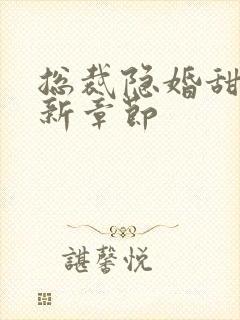 总裁隐婚甜
新章节
諶馨悦